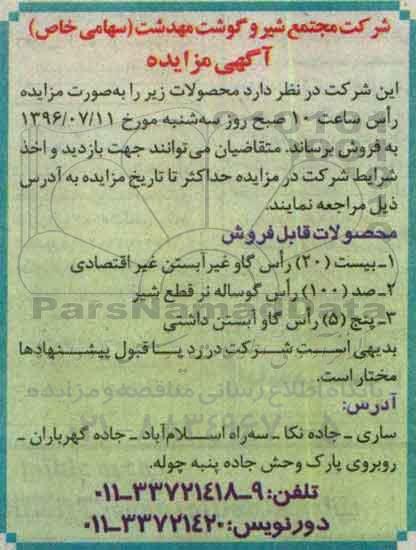 شرکت مجتمع شیر و گوشت مهدشت (سهامی خاص)
آگهی مزایده
این شرکت در نظر دارد محصولات زیر را به‌صورت مزایده
رأس ساعت ۱۰ صبح روز سه‌شنبه مورخ ۱۳۹۶/۰۷/۱۱
به فروش برساند. متقاضیان می‌توانند جهت بازدید و اخذ
شرایط شرکت در مزایده حداکثر تا تاریخ مزایده به آدرس
ذیل مراجعه نمایند.
محصولات قابل فروش
۱ـ بیست (۲۰) رأس گاو غیرآبستن غیر اقتصادی
۲ـ صد (۱۰۰) رأس گوساله نر قطع شیر
۳ـ پنج (۵) رأس گاو آبستن داشتی
بدیهی است شرکت در رد یا قبول پیشنهادها
مختار است.
آدرس:
ساری ـ جاده نکا ـ سه‌راه اسلام‌آباد ـ جاده گهرباران ـ
روبروی پارک وحش جاده پنبه چوله.
تلفن: ۹ـ۳۳۷۲۱۴۱۸ـ۰۱۱
دورنویس: ۳۳۷۲۱۴۲۰ـ۰۱۱
ParsNamadData